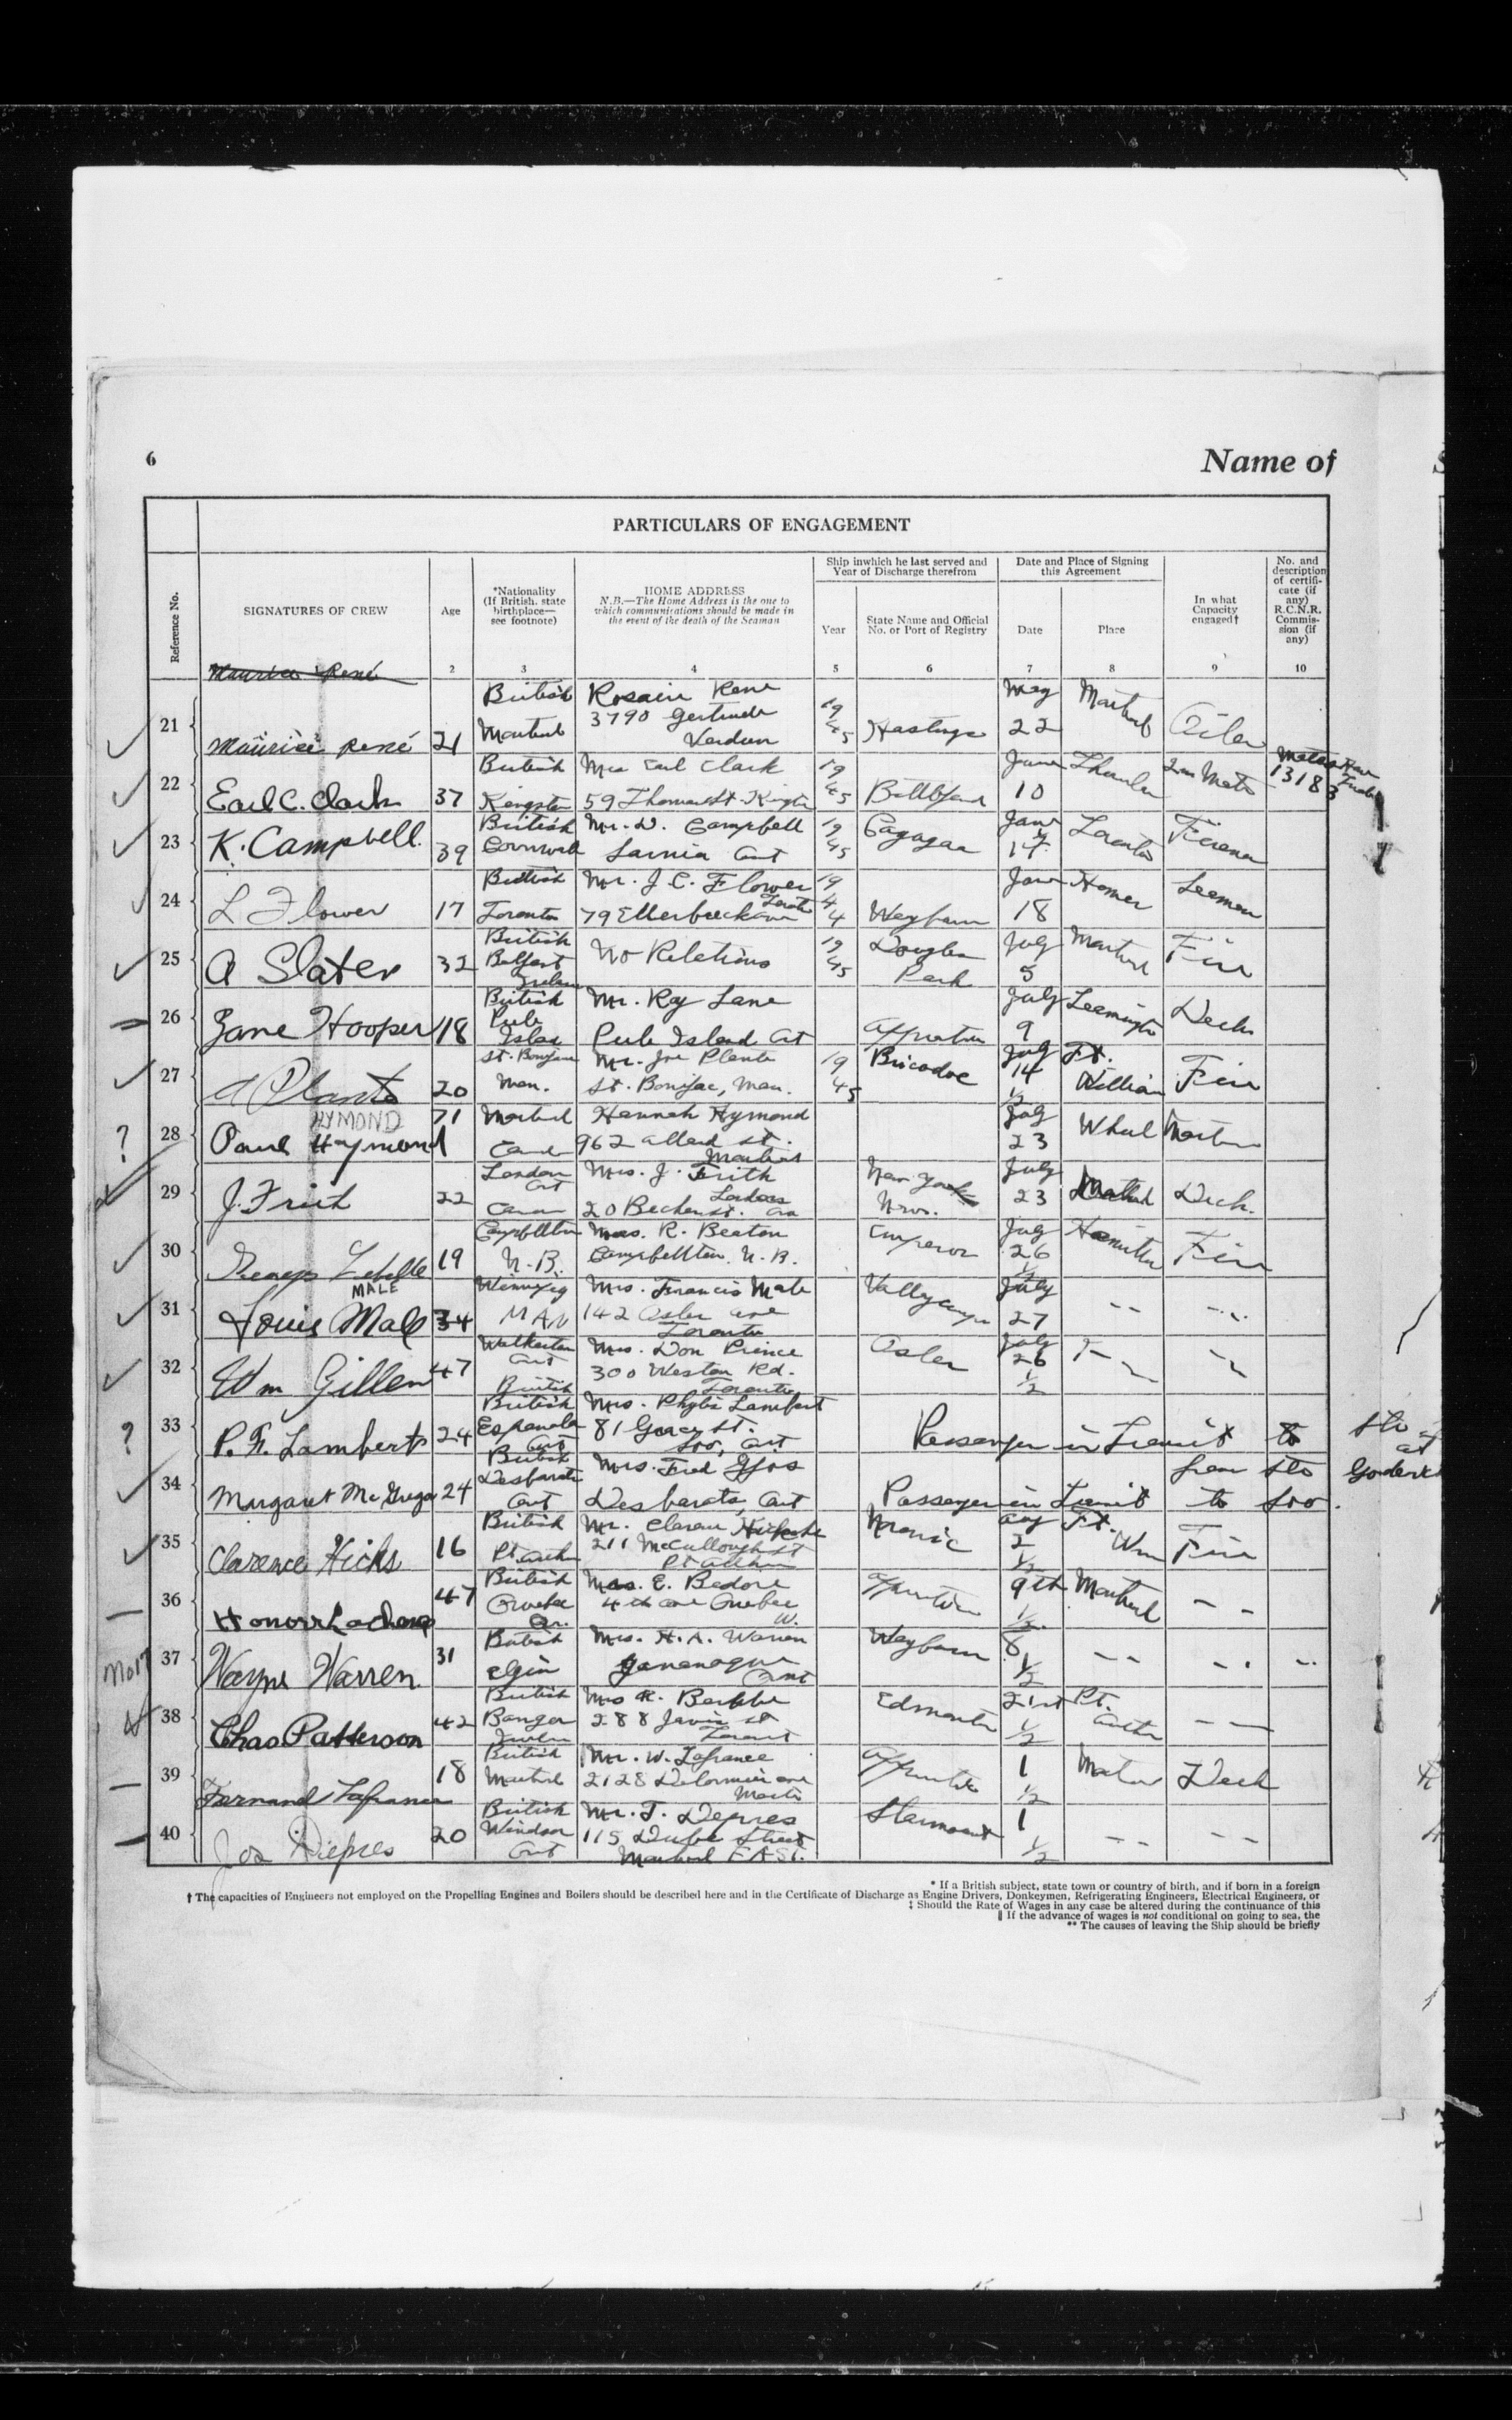 6
Name of
PARTICULARS OF ENGAGEMENT
Reference No.
SIGNATURES OF CREW
Age
*Nationality
(If British, state
birthplace—
see footnote)
HOME ADDRESS
N.B.—The Home Address is the one to
which communications should be made in
the event of the death of the Seaman
Ship inwhich he last served and
Year of Discharge therefrom
Year
State Name and Official
No. or Port of Registry
Date and Place of Signing
this Agreement
Date
Place
In what
Capacity
engaged†
No. and
description
of certifi-
cate (if
any)
R.C.N.R.
Commis-
sion (if
any)
Maurice René
2 3 4 5 6 7 8 9 10
British Rosaire Rene 19 May
21 Maurice René 21 3790 Gertrude 45 Hastings 22 Oiler
Verdun
British Mrs Earl Clark 19 June
22 Earl C. Clark 37 Kingston 59 Thomas St. 45 10 2nd Mate 13183
British Mr. D. Campbell 19
23 K. Campbell. 39 Cornwall Sarnia Ont 45 Toronto Fireman
British Mr. J. C. Flower 19 Homer
24 L Flower 17 Toronto 79 Ellerbeck 44 Weyburn 18
British 19 July Montreal
25 A Slater 32 Belfast No Relations 45 Park 5 Fire
Ireland
British Mr. Roy Lane July Leamington Deck
26 Jane Hooper 18 Pele Island Pele Island Ont 9
St. Boniface Mr. Joe Plante 19 Bricodoc July Ft.
27 A Plante 20 Man. St. Boniface, Man. 45 14 William Fire
1/2
HYMOND
71 Montreal Hannah Hymond July
28 Paul Haymond 962 Allard St. 23
London Mrs. J. Frith New York July
29 J. Frith 22 Ont London 23 Deck.
Campbellton Mrs. R. Beaton Emperor July Hamilton
30 19 N.B. Campbellton. N.B. 26 Fire
1/2
MALE
Winnipeg Mrs. Francis Male July
31 Louis Male 34 MAN 142 Osler Ave 27 -- --
Toronto
Walkerton Mrs. Don Prince Osler July
32 Wm Gillen 47 Ont 300 Weston Rd. 26
British Toronto 1/2
British Mrs. Phylis Lambert
33 P. F. Lambert 24 Espanola 81 St. Passenger in Transit to
Ont Soo, Ont
British Mrs. Fred from
34 Margaret McGregor 24 Desbarats
Ont Desbarats, Ont Passenger in Transit to Soo.
British Mr. Noronic Aug Ft.
35 Clarence Hicks 16 Pt Arthur 211 McCullough St 2 Wm Fire
Pt Arthur 1/2
British Mrs. E. Bedore 9th Montreal
36 47 Quebec 4th ave Quebec 1/2 --
British Mrs. H. A. Warren Weyburn 8
No 17 37 Wayne Warren. 31 Elgin Gananoque 1/2 -- -- --
Ont
British Edmonton 21st Pt.
38 Chas Patterson 42 Bangor 288 Jarvis st 1/2 Arthur --
Toronto
British Mr. W. Lafrance 1
39 Fernand Lafrance 18 Montreal 2128 Delormier ave 1/2 Deck
British Mr. T. Depres Stormount 1
40 Jos Depres 20 Windsor 115 Street 1/2 -- --
Ont Montreal EAST.
* If a British subject, state town or country of birth, and if born in a foreign
† The capacities of Engineers not employed on the Propelling Engines and Boilers should be described here and in the Certificate of Discharge as Engine Drivers, Donkeymen, Refrigerating Engineers, Electrical Engineers, or
‡ Should the Rate of Wages in any case be altered during the continuance of this
‖ If the advance of wages is not conditional on going to sea, the
** The causes of leaving the Ship should be briefly